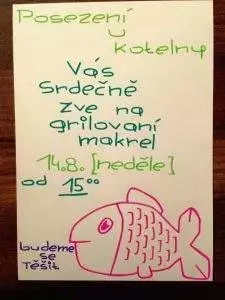 Posezení
u
kotelny
Vás
Srdečně
zve na
grilování
makrel
14.8. [neděle]
od 15°°
budeme
se
Těšit